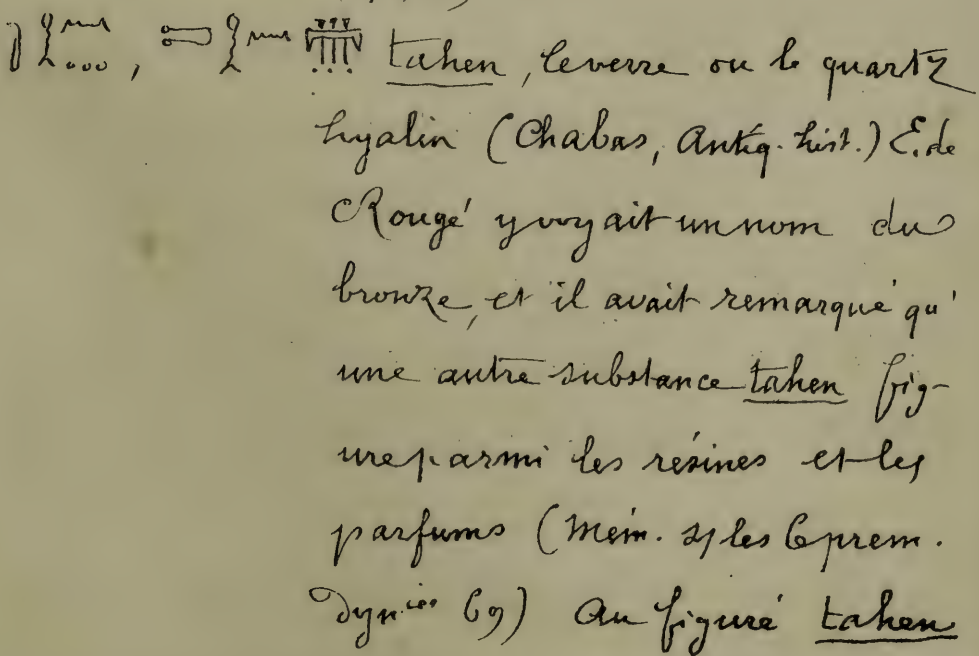 tahen, le verre ou le quartz
hyalin (Chabas, Antiq. hist.) E. de
Rougé y voyait un nom du
bronze, et il avait remarqué qu'
une autre substance tahen fig-
ure parmi les résines et les
parfums (Mém. s/ les 6 prem.
Dyn.ies 69) Au figuré tahen